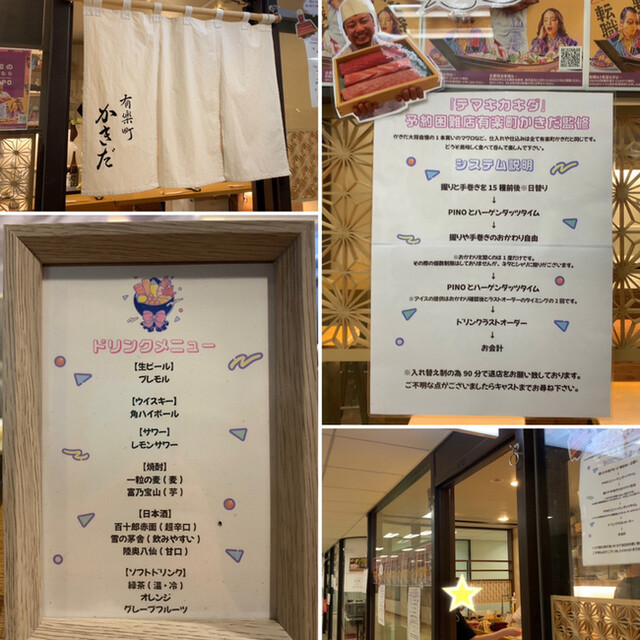 有楽町
かきだ
転職
「テマキカキダ」
予約困難店有楽町かきだ監修
かきだ大将自慢の1本買いのマグロなど、仕入れや仕込みは全て有楽町かきだと同じです。
どうぞ美味しく食べて呑んで楽しんで下さい。
システム説明
握りと手巻きを15種前後※日替り
↓
PINOとハーゲンダッツタイム
↓
握りや手巻きのおかわり自由
※おかわりを聞くのは1度だけです。
その際の個数制限はしておりませんが、ネタとシャリに限りがございます。
↓
PINOとハーゲンダッツタイム
※アイスの提供はおかわり確認後とラストオーダーのタイミングの2回です。
↓
ドリンクラストオーダー
↓
お会計
※入れ替え制の為90分で退店をお願い致しております。
ご不明な点がございましたらキャストまでお尋ね下さい。
ドリンクメニュー
【生ビール】
プレモル
【ウイスキー】
角ハイボール
【サワー】
レモンサワー
【焼酎】
一粒の麦（麦）
富乃宝山（芋）
【日本酒】
百十郎赤面（超辛口）
雪の茅舎（飲みやすい）
陸奥八仙（甘口）
【ソフトドリンク】
緑茶（温・冷）
オレンジ
グレープフルーツ